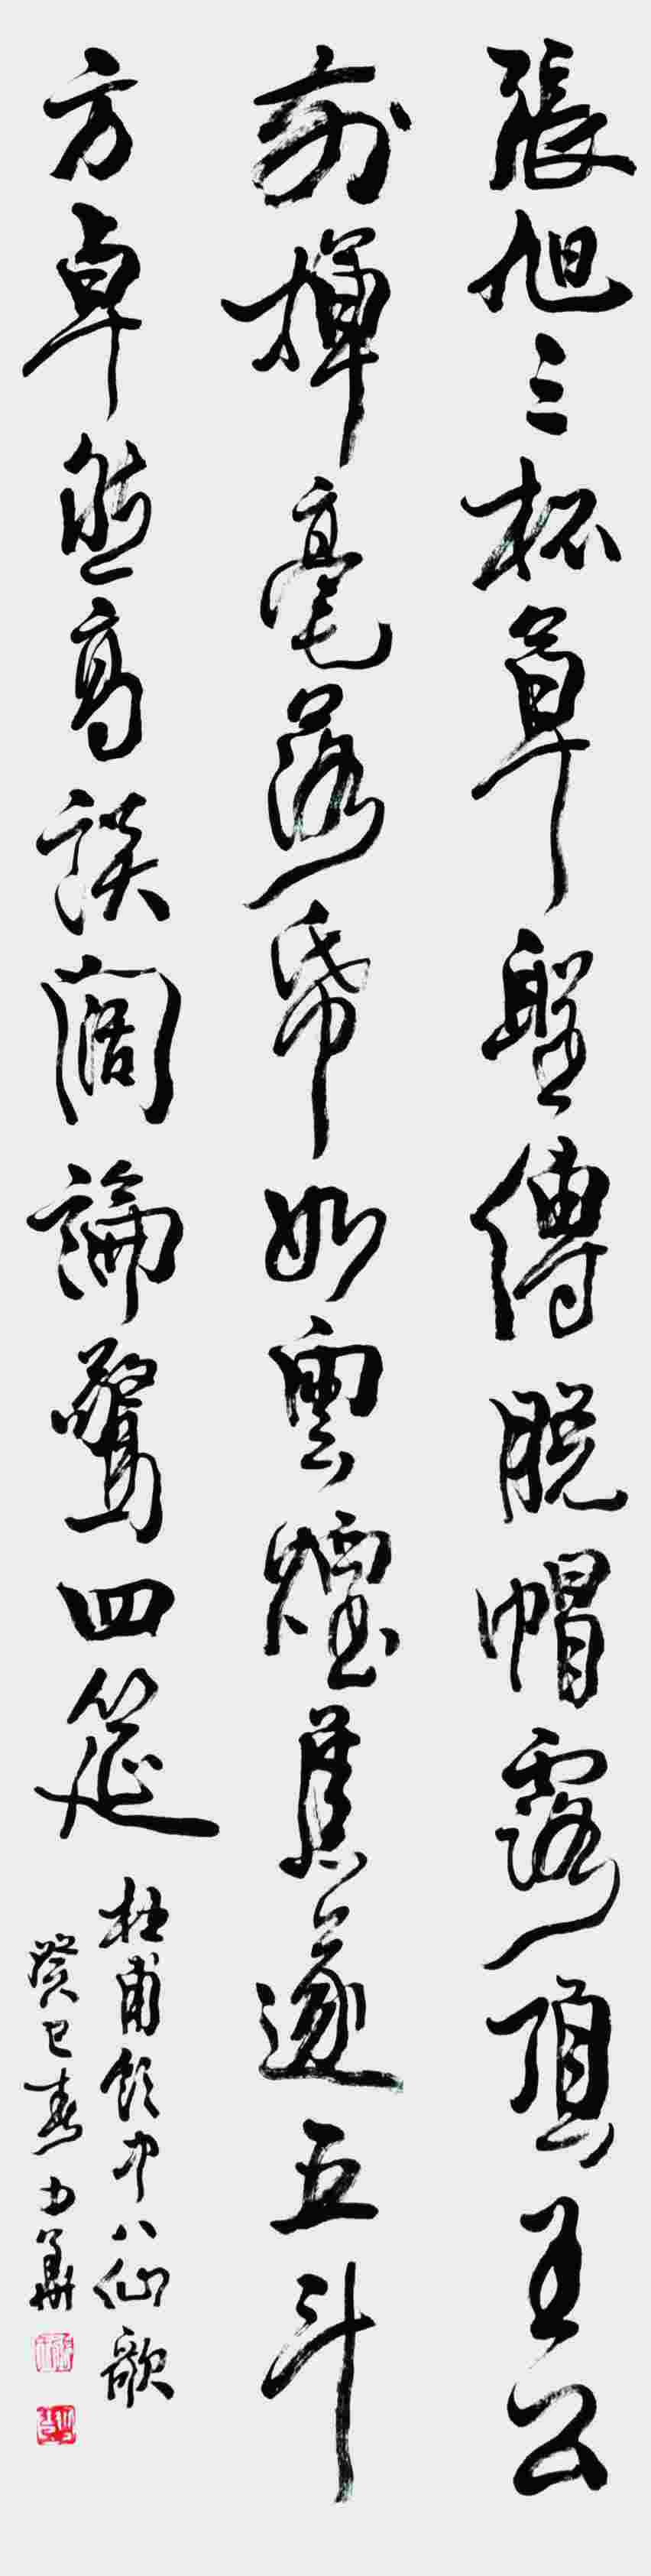 張旭三杯草聖傳脫帽露頂王公
前揮毫落帋如雲煙焦遂五斗
方卓然高談闊論驚四筵
杜甫飲中八仙歌
癸巳春力華